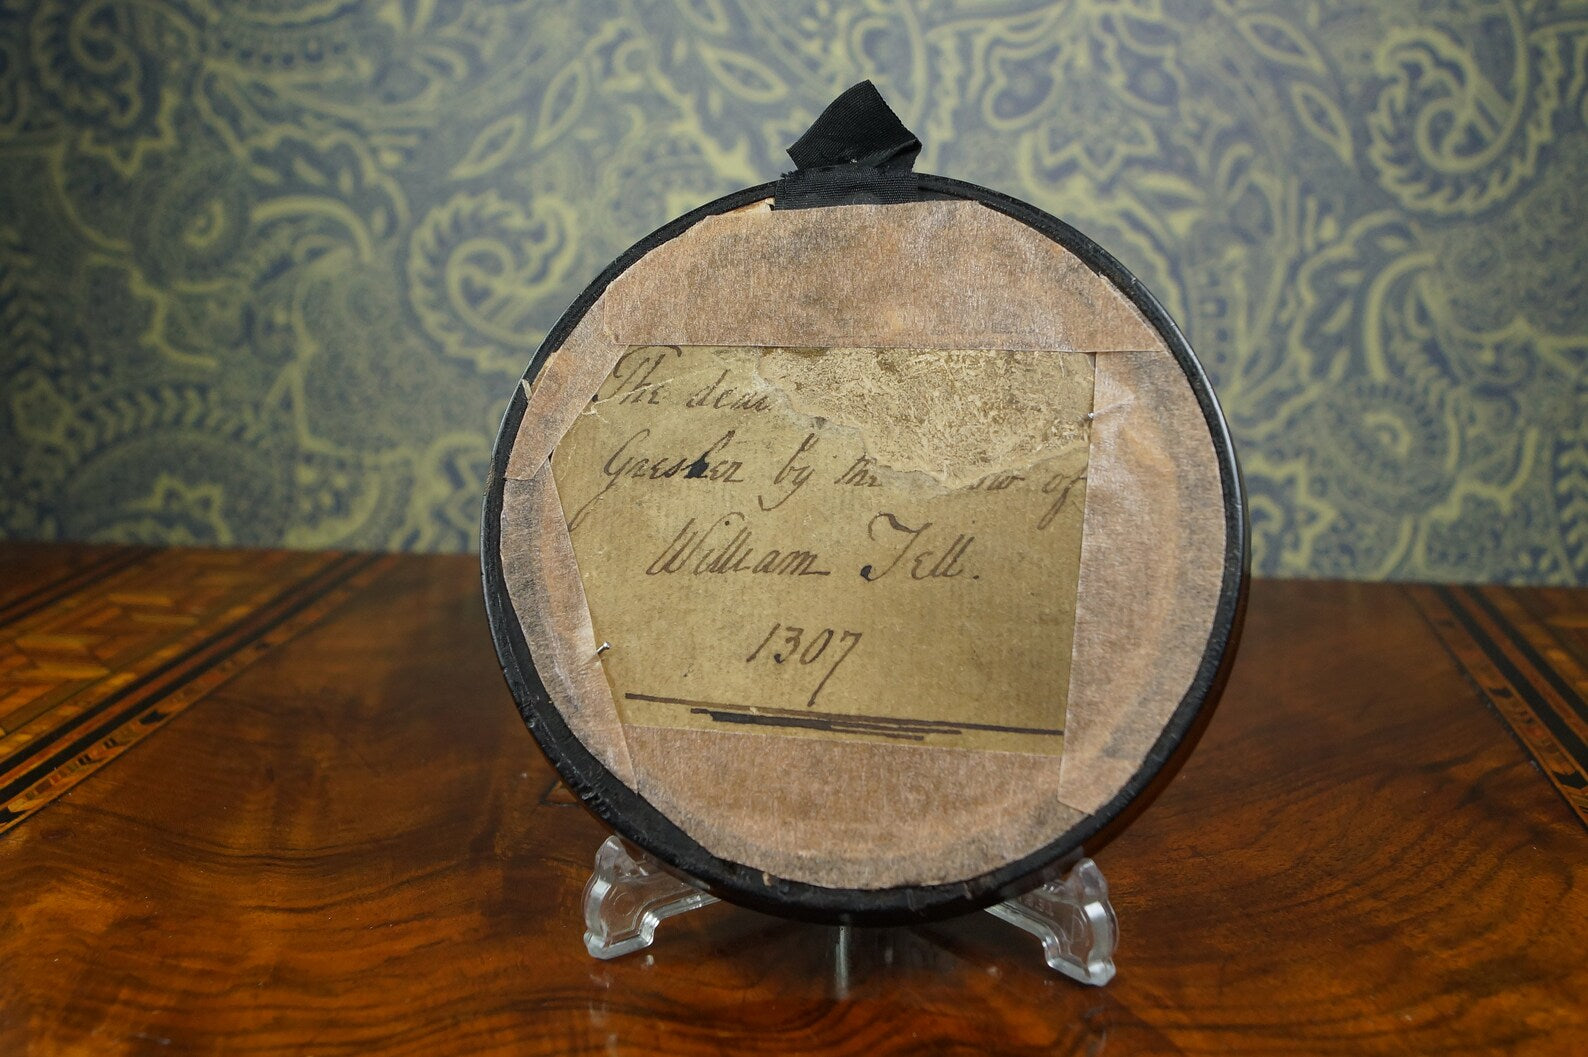 The
Gresler by the of
William Tell.
1307